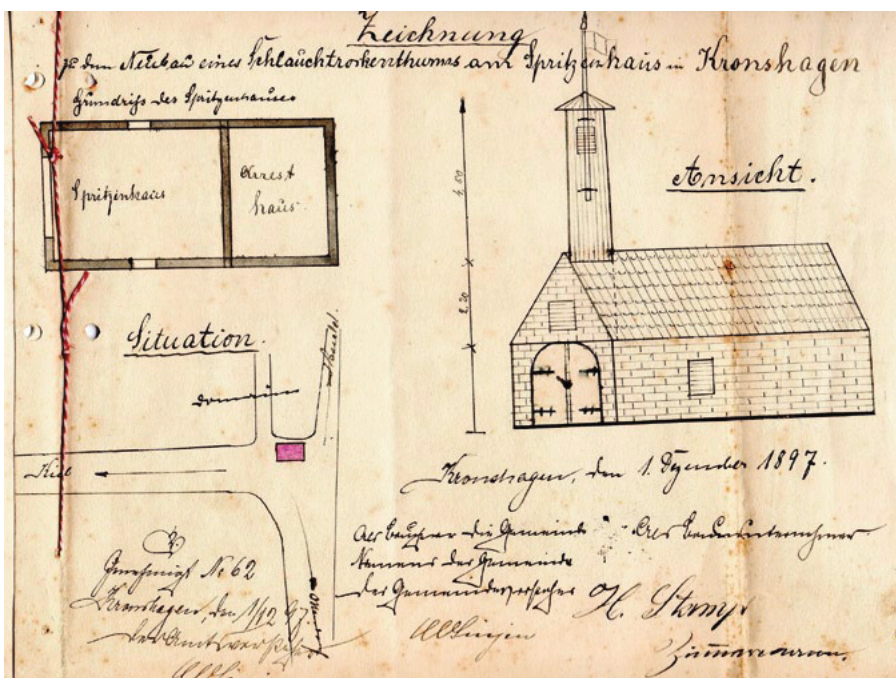 Zeichnung
zu dem Neubau eines Schlauchtrockenthurms am Spritzenhaus in Kronshagen
Grundriss des Spritzenhauses
Spritzenhaus
Arrest
haus
Ansicht.
4,50
2,20
Situation.
Domaine
Kiel
Kronshagen, den 1. Dezember 1897.
Als Bauherr die Gemeinde
Als Bauunternehmer
Namens der Gemeinde
Der Gemeindevorsteher
H. Stamp
Zimmermann.
Genehmigt No 62
Kronshagen, den 1/12 97.
Der Amtsvorsteher